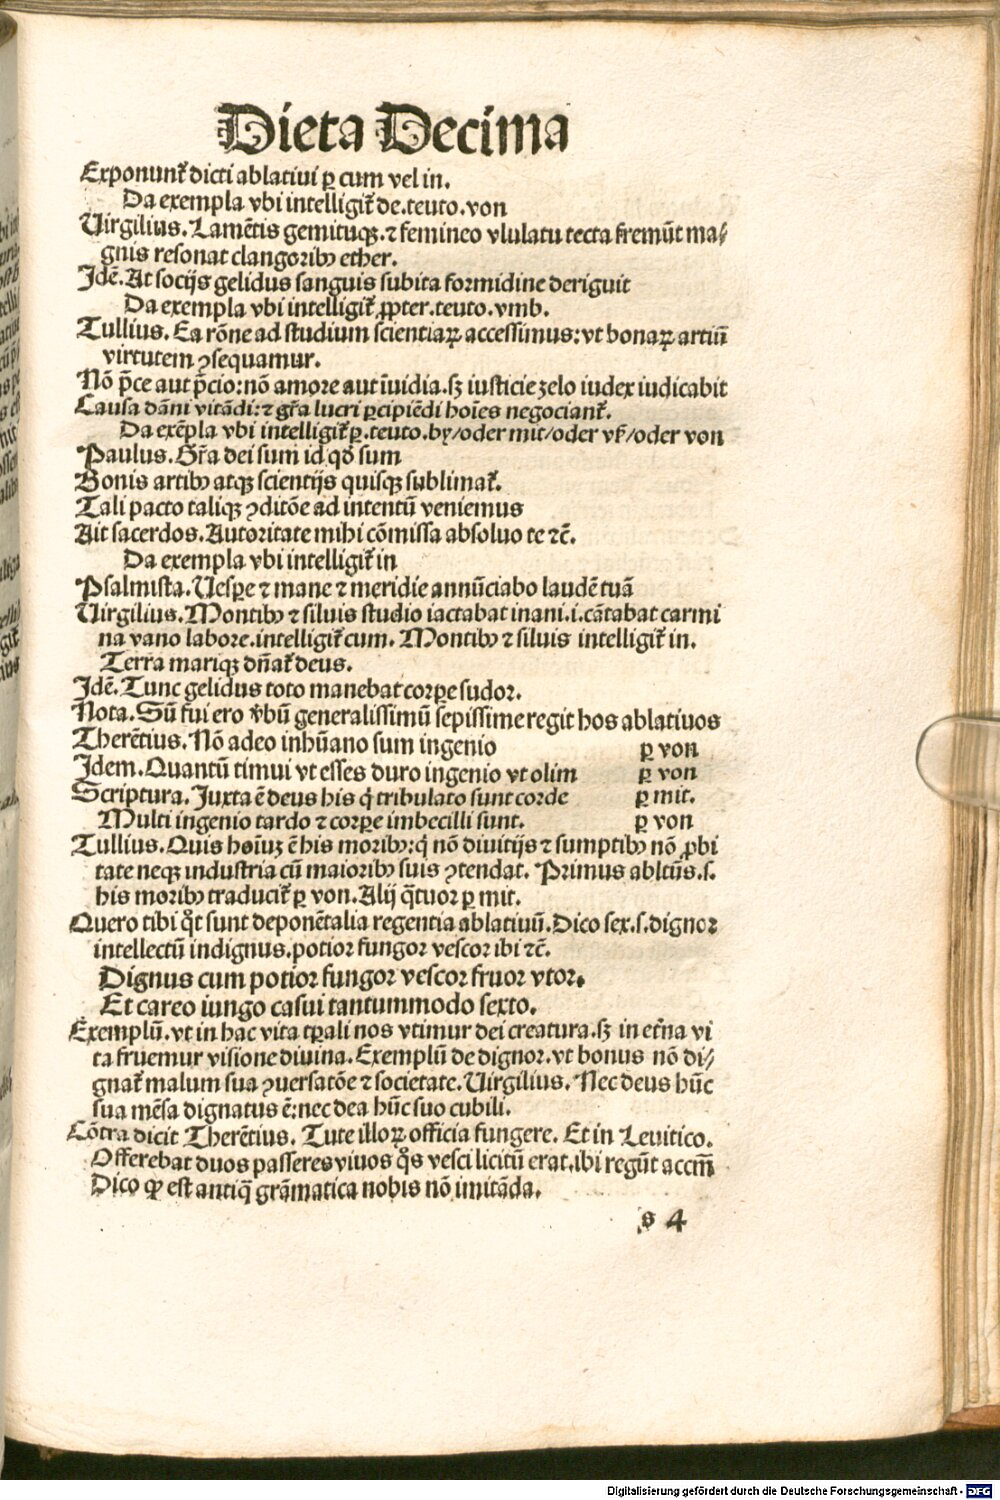 Dieta Decima
Exponunt᷑ dicti ablatiui ꝑ cum vel in.
Da exempla vbi intelligit᷑ de.teuto.von
Uirgilius.Lamētis gemituqꝫ.⁊ femineo vlulatu tecta fremūt ma⸗
gnis resonat clangoribꝰ ether.
Idē.At socijs gelidus sanguis subita formidine deriguit
Da exempla vbi intelligit᷑ ꝓpter.teuto.vmb.
Tullius.Ea rōne ad studium scientiaꝝ accessimus:vt bonaꝝ artiū
virtutem ꝯsequamur.
Nō p̄ce aut p̄cio:nō amore aut īuidia.sꝫ iusticie zelo iudex iudicabit
Causa dāni vitādi:⁊ gr̄a lucri ꝑcipiēdi hoīes negociant᷑.
Da exēpla vbi intelligit᷑ ꝑ.teuto.by/oder mit/oder vß/oder von
Paulus.Gr̄a dei sum id qd̄ sum
Bonis artibꝰ atqꝫ scientijs quisqꝫ sublimat᷑.
Tali pacto taliqꝫ ꝯditōe ad intentū veniemus
Ait sacerdos.Autoritate mihi cōmissa absoluo te ⁊c̄.
Da exempla vbi intelligit᷑ in
Psalmista.Uesꝑe ⁊ mane ⁊ meridie annūciabo laudē tuā
Uirgilius.Montibꝰ ⁊ siluis studio iactabat inani.i.cātabat carmi
na vano labore.intelligit᷑ cum. Montibꝰ ⁊ siluis intelligit᷑ in.
Terra mariqꝫ dn̄at᷑ deus.
Idē.Tunc gelidus toto manebat corꝑe sudor.
Nota.Sū fui ero v̄bū generalissimū sepissime regit hos ablatiuos
Therētius.Nō adeo inhūano sum ingenio ꝑ von
Idem.Quantū timui vt esses duro ingenio vt olim ꝑ von
Scriptura.Iuxta ē deus his q̄ tribulato sunt corde ꝑ mit.
Multi ingenio tardo ⁊ corꝑe imbecilli sunt. ꝑ von
Tullius.Quis hoīuꝫ ē his moribꝰ:q̄ nō diuitijs ⁊ sumptibꝰ nō ꝓbi
tate neqꝫ industria cū maioribꝰ suis ꝯtendat. Primus abltūs.s.
his moribꝰ traducit᷑ ꝑ von.Alij q̄tuor ꝑ mit.
Quero tibi qͦt sunt deponētalia regentia ablatiuū.Dico sex.s.dignor
intellectū indignus.potior fungor vescor ibi ⁊c̄.
Dignus cum potior fungor vescor fruor vtor.
Et careo iungo casui tantummodo sexto.
Exemplū.vt in hac vita tꝑali nos vtimur dei creatura.sꝫ in et̄na vi
ta fruemur visione diuina.Exemplū de dignor.vt bonus nō di⸗
gnat᷑ malum sua ꝯuersatōe ⁊ societate.Uirgilius.Nec deus hūc
sua mēsa dignatus ē:nec dea hūc suo cubili.
Cōtra dicit Therētius. Tute illoꝝ officia fungere. Et in Leuitico.
Offerebat duos passeres viuos qͦs vesci licitū erat.ibi regūt accm̄
Dico ꝙ est antiq̄ grāmatica nobis nō imitāda.
s 4
Digitalisierung gefördert durch die Deutsche Forschungsgemeinschaft - DFG